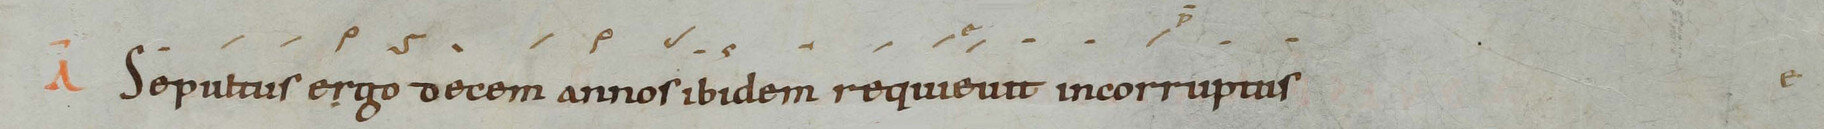 A Sepultus ergo decem annos ibidem requieuit incorruptus e